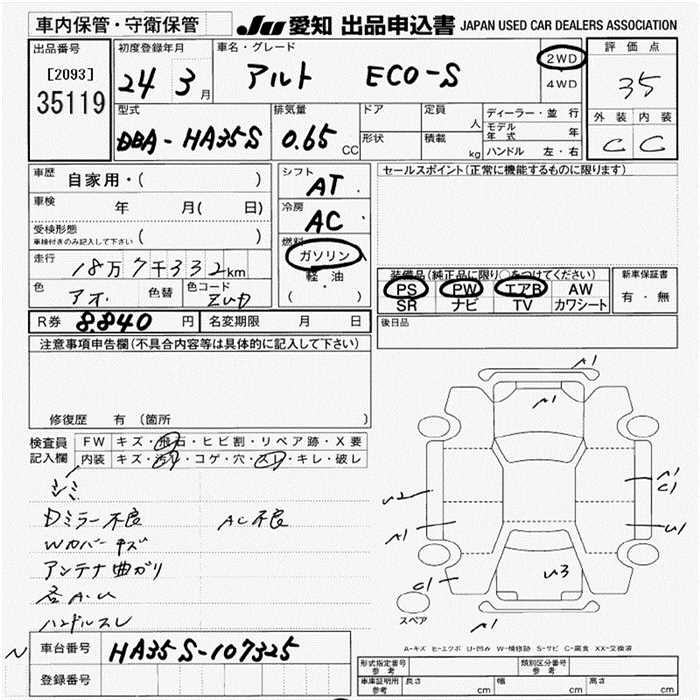 車内保管・守衛保管 JU 愛知 出品申込書 JAPAN USED CAR DEALERS ASSOCIATION
出品番号 初度登録年月 車名・グレード 評価点
[2093] 24 3月 アルト ECO-S 2WD 35
35119 4WD
型式 排気量 ドア 定員 人 ディーラー・並行 外装 内装
DBA-HA35S 0.65CC 形状 積載 kg モデル年式 年 C C
ハンドル 左・右
車歴 自家用・( ) シフト AT セールスポイント(正常に機能するものに限ります)
車検 年 月( 日) 冷房 AC
受検形態 ( )
車検付きのみ記入して下さい
燃料 ガソリン
走行 18万7千332km 軽・油 装備品(純正品に限り○をつけてください) 新車保証書
色 アオ 色替 色コード ZUD ( ) PS PW エアB AW 有・無
SR ナビ TV カワシート
R券 8,840円 名変期限 月 日 後日品
注意事項申告欄(不具合内容等は具体的に記入して下さい)
修復歴 有 (箇所 )
検査員記入欄 FW キズ・飛石・ヒビ割・リペア跡・X要
内装 キズ・汚れ・コゲ・穴・スレ・キレ・破レ
シミ
Dミラー不良 AC不良
Wカバーキズ
アンテナ曲がり
各A.U
ハンドルスレ
A1
A1
A1
C1
U2
A1
U1
C1
U3
A1
スペア
A-キズ E-エクボ U-凹み W-補修跡 S-サビ C-腐食 XX-交換済
車台番号 HA35S-107325
登録番号
形式指定番号 参考 類別区分番号 参考
車庫証明用 参考 長さ cm 幅 cm 高さ cm